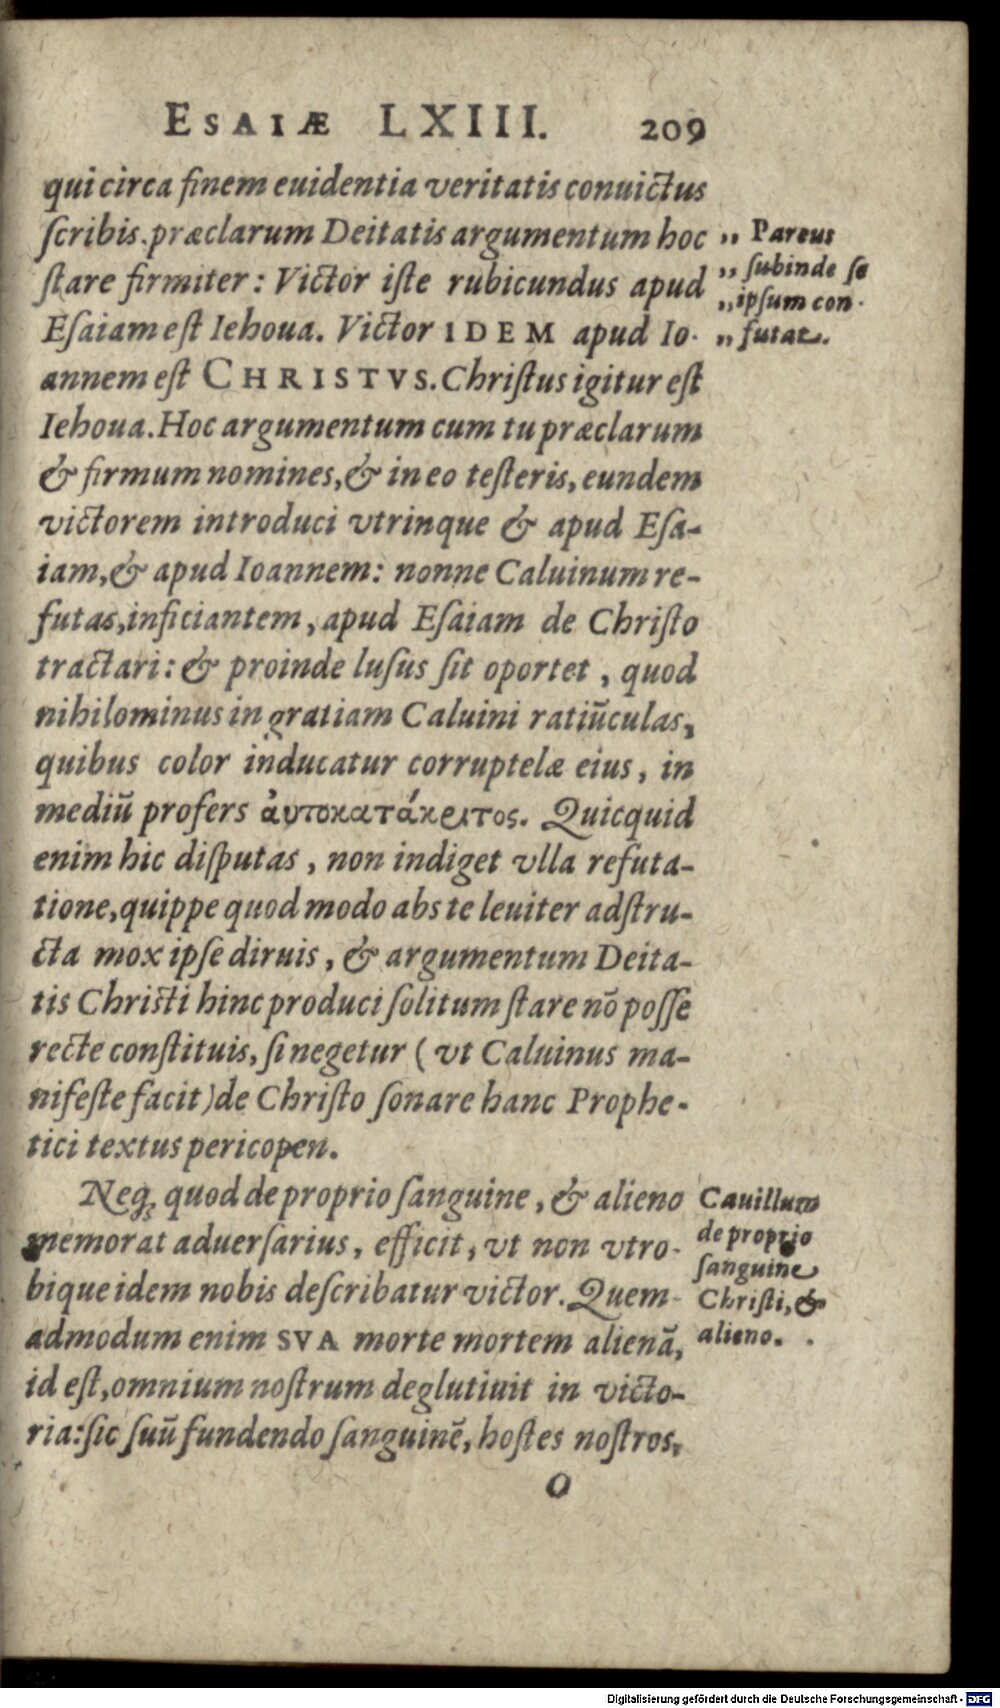 ESAIÆ LXIII. 209
qui circa finem euidentia veritatis conuictus
ſcribis. præclarum Deitatis argumentum hoc
ſtare firmiter: Victor iſte rubicundus apud
Eſaiam eſt Iehoua. Victor IDEM apud Io-
annem eſt CHRISTVS. Chriſtus igitur eſt
Iehoua. Hoc argumentum cum tu præclarum
& firmum nomines, & in eo teſteris, eundem
victorem introduci vtrinque & apud Eſa-
iam, & apud Ioannem: nonne Caluinum re-
futas, inficiantem, apud Eſaiam de Chriſto
tractari: & proinde luſus ſit oportet, quod
nihilominus in gratiam Caluini ratiūculas,
quibus color inducatur corruptelæ eius, in
mediū profers ἀυτοκατάκριτος. Quicquid
enim hic diſputas, non indiget vlla refuta-
tione, quippe quod modo abs te leuiter adſtru-
cta mox ipſe diruis, & argumentum Deita-
tis Chriſti hinc produci ſolitum ſtare nō poſſe
recte conſtituis, ſi negetur (vt Caluinus ma-
nifeſte facit) de Chriſto ſonare hanc Prophe-
tici textus pericopen.
Neq; quod de proprio ſanguine, & alieno
memorat aduerſarius, efficit, vt non vtro-
bique idem nobis deſcribatur victor. Quem-
admodum enim SVA morte mortem alienā,
id eſt, omnium noſtrum deglutiuit in victo-
ria: ſic ſuū fundendo ſanguinē, hoſtes noſtros,
O
„ Pareus
„ ſubinde ſe
„ ipſum con-
„ futat.
Cauillum
de proprio
ſanguine
Chriſti, &
alieno.
Digitalisierung gefördert durch die Deutsche Forschungsgemeinschaft - DFG